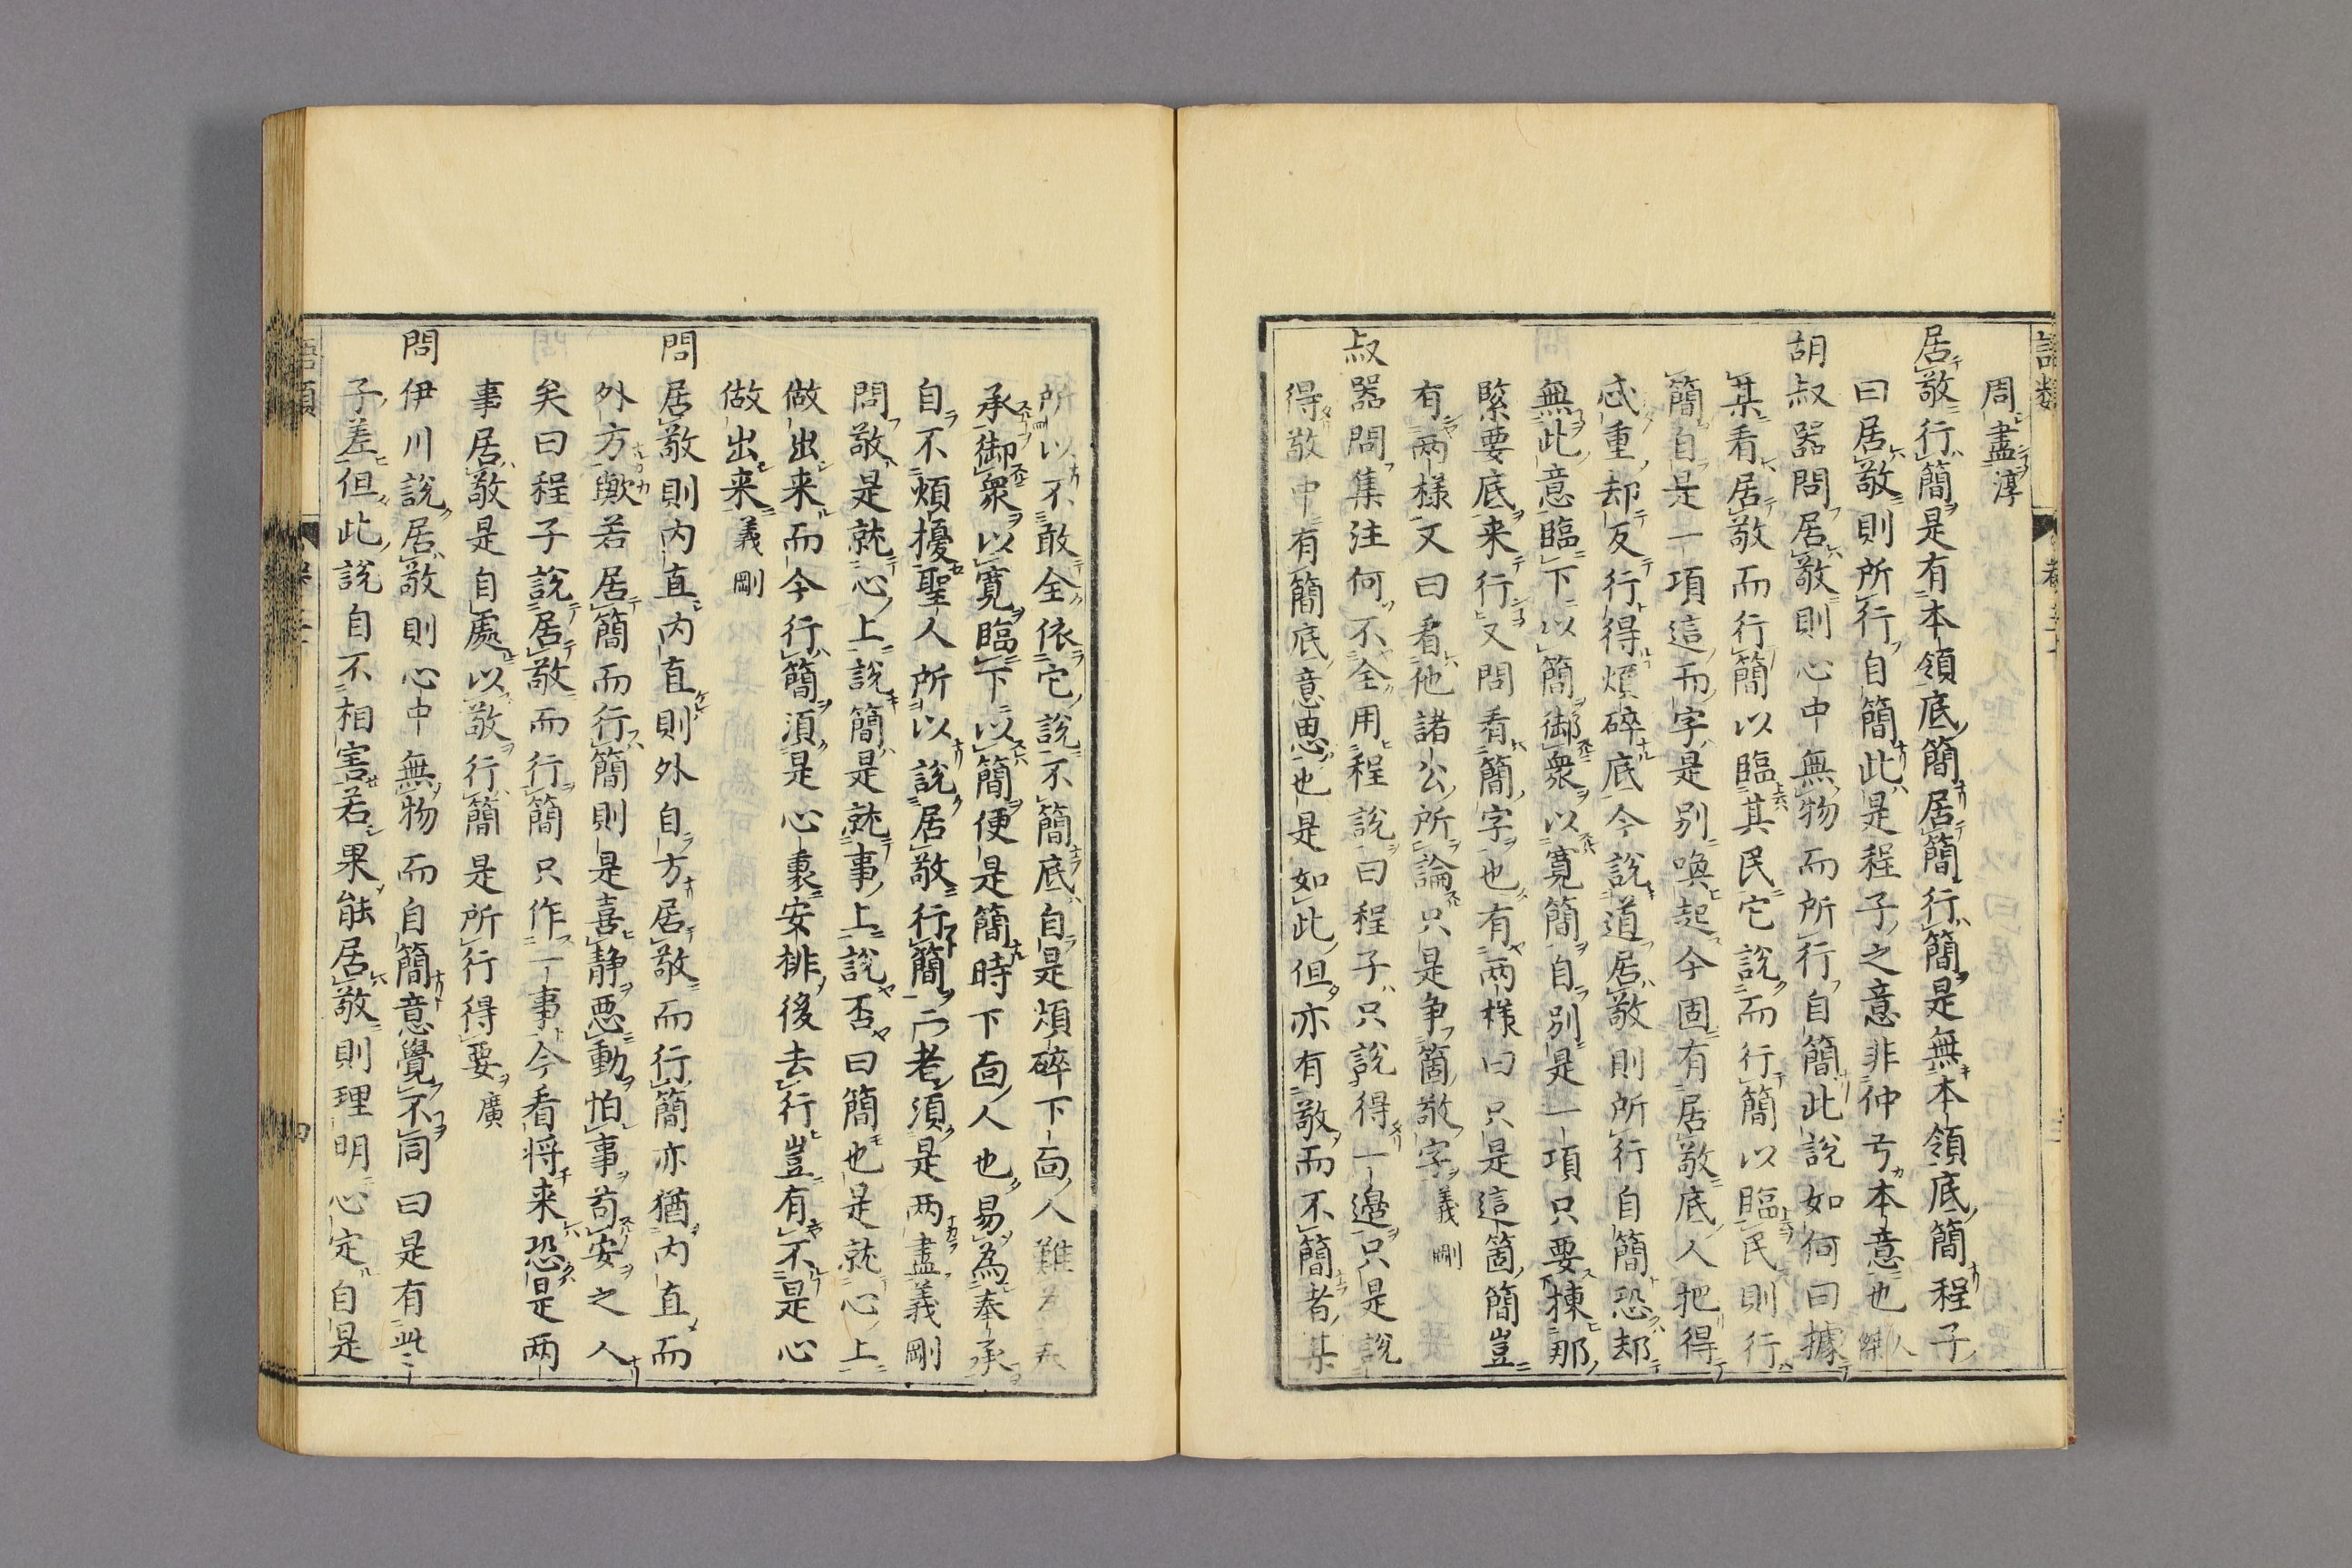 周盡淳
居敬行簡是有本領底簡居簡行簡是無本領底簡程子
曰居敬則所行自簡此是程子之意非仲弓本意也人傑
胡叔器問居敬則心中無物而所行自簡此說如何曰據
某看居敬而行簡以臨其民它說而行簡以臨民則行
簡自是一項這而字是別喚起今固有居敬底人把得
忒重却反行得煩碎底今說道居敬則所行自簡恐却
無此意臨下以簡御衆以寛簡自別是一項只要揀那
緊要底来行又問看簡字也有兩樣曰只是這箇簡豈
有兩樣又曰看他諸公所論只是争箇敬字義剛
叔器問集注何不全用程說曰程子只說得一邉只是說
得敬中有簡底意思也是如此但亦有敬而不簡者某
所以不敢全依它說不簡底自是煩碎下面人難為奉
承御衆以寛臨下以簡便是簡時下面人也易為奉承
自不煩擾聖人所以說居敬行簡二者須是兩盡義剛
問敬是就心上說簡是就事上說否曰簡也是就心上
做出来而今行簡須是心裏安排後去行豈有不是心
做出来義剛
問居敬則内直内直則外自方居敬而行簡亦猶内直而
外方歟若居簡而行簡則是喜静悪動怕事苟安之人
矣曰程子說居敬而行簡只作一事今看将来恐是兩
事居敬是自處以敬行簡是所行得要廣
問伊川說居敬則心中無物而自簡意覺不同曰是有些
子差但此說自不相害若果能居敬則理明心定自是